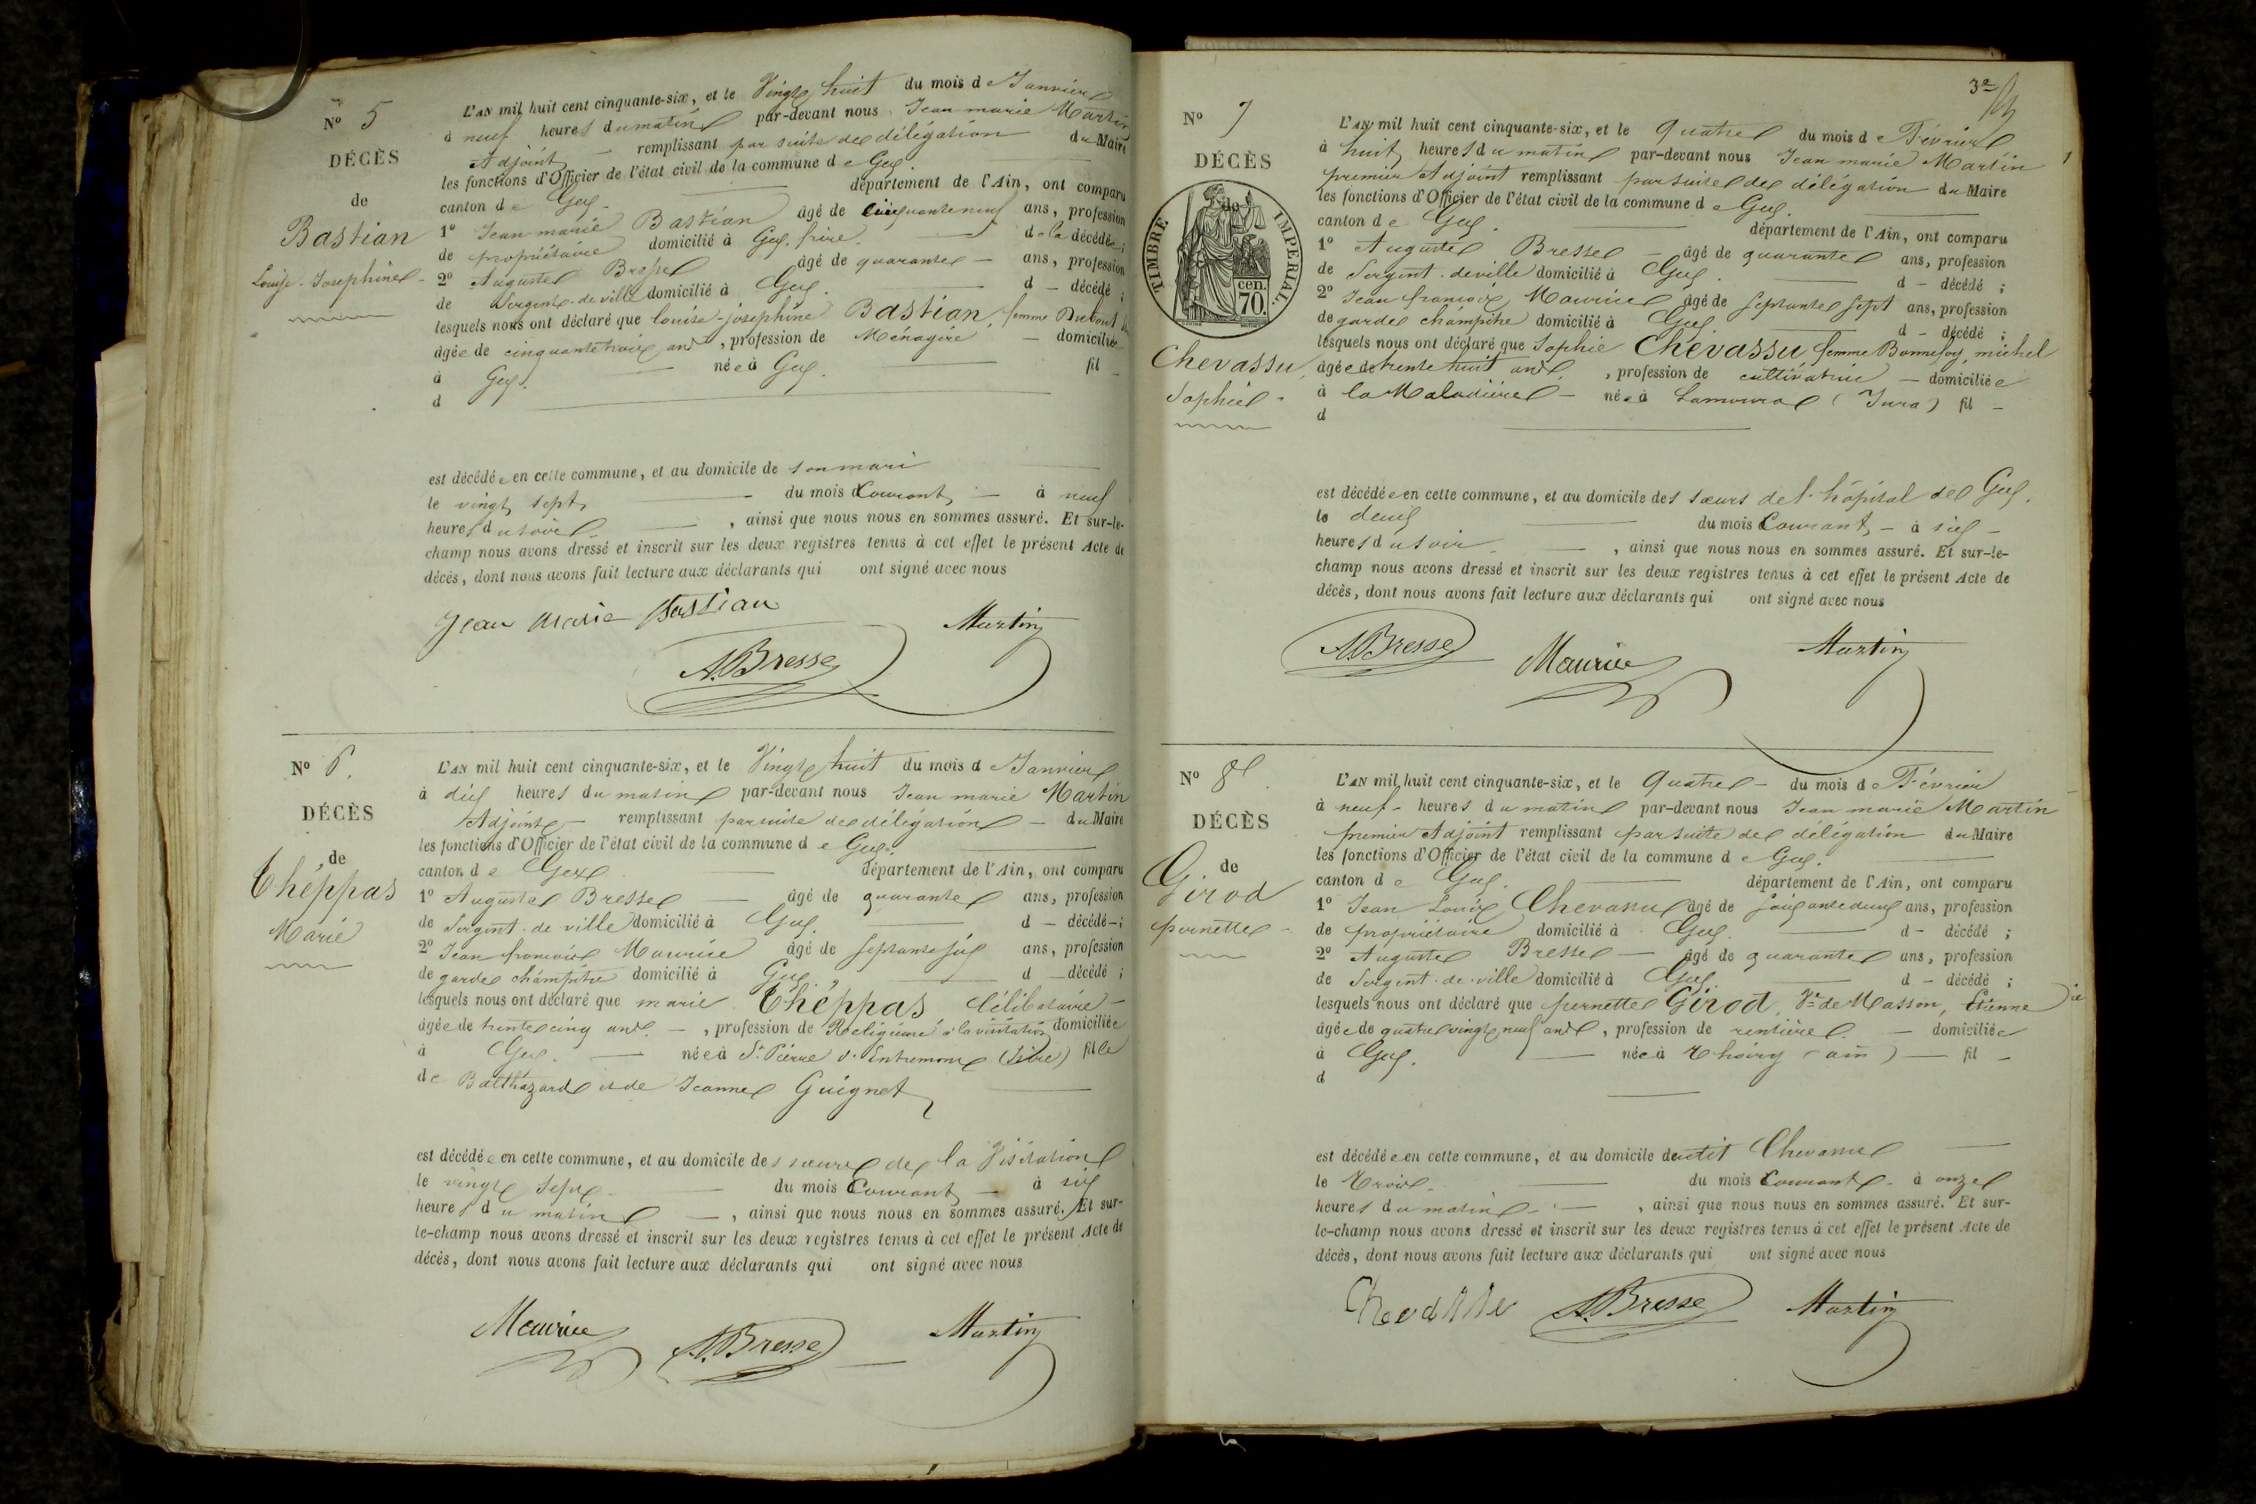 Nº 5
DÉCÈS
de
Bastian
Louise-Josephine
L'AN mil huit cent cinquante-six, et le Vingt huit du mois de Janvier
à neuf heures du matin par-devant nous Jean marie Martin
Adjoint remplissant par suite de délégation du Maire
les fonctions d'Officier de l'état civil de la commune de Gex.
canton de Gex. département de l'Ain, ont comparu
1º Jean marie Bastian âgé de cinquante neuf ans, profession
de propriétaire domicilié à Gex. frère. de la décédée;
2º Auguste Bresse âgé de quarante ans, profession
de Sergent-de-ville domicilié à Gex. d décédé;
lesquels nous ont déclaré que louise-josephine Bastian, femme Dubout
âgée de cinquante trois ans, profession de Ménagère domiciliée
à Gex. née à Gex. fil
d
est décédée en cette commune, et au domicile de son mari
le vingt sept du mois Courant à neuf
heures du soir, ainsi que nous nous en sommes assuré. Et sur-le-
champ nous avons dressé et inscrit sur les deux registres tenus à cet effet le présent Acte de
décès, dont nous avons fait lecture aux déclarants qui ont signé avec nous
Jean Marie Bastian Martin
A. Bresse
Nº 6.
DÉCÈS
de
Théppas
Marie
L'AN mil huit cent cinquante-six, et le Vingt huit du mois de Janvier
à dix heures du matin par-devant nous Jean marie Martin
Adjoint remplissant par suite de délégation du Maire
les fonctions d'Officier de l'état civil de la commune de Gex.
canton de Gex département de l'Ain, ont comparu
1º Auguste Bresse âgé de quarante ans, profession
de Sergent-de-ville domicilié à Gex. d décédé;
2º Jean françois Maurice âgé de septante six ans, profession
de garde champêtre domicilié à Gex. d décédé;
lesquels nous ont déclaré que marie Théppas Célibataire
âgée de trente cinq ans, profession de Religieuse à la visitation domiciliée
à Gex. née à St Pierre d'Entremont (Isère) fille
de Balthazard et de Jeanne Guignet
est décédée en cette commune, et au domicile des sœurs de la Visitation
le vingt sept du mois Courant à six
heures du matin, ainsi que nous nous en sommes assuré. Et sur-
le-champ nous avons dressé et inscrit sur les deux registres tenus à cet effet le présent Acte de
décès, dont nous avons fait lecture aux déclarants qui ont signé avec nous
Maurice A. Bresse Martin
3e
Nº 7
DÉCÈS
de
TIMBRE IMPERIAL.
70. cen.
Chevassu,
Sophie
L'AN mil huit cent cinquante-six, et le quatre du mois de Février
à huit heures du matin par-devant nous Jean marie Martin
premier Adjoint remplissant par suite de délégation du Maire
les fonctions d'Officier de l'état civil de la commune de Gex.
canton de Gex. département de l'Ain, ont comparu
1º Auguste Bresse âgé de quarante ans, profession
de Sergent-de-ville domicilié à Gex. d décédé;
2º Jean françois Maurice âgé de septante sept ans, profession
de garde champêtre domicilié à Gex. d décédé;
lesquels nous ont déclaré que Sophie Chevassu femme Bonnefoy, michel
âgée de trente huit ans, profession de cultivatrice domiciliée
à la Maladière née à Lamoura (Jura) fil
d
est décédée en cette commune, et au domicile des sœurs de l'hôpital de Gex.
le deux du mois Courant à six
heures du soir, ainsi que nous nous en sommes assuré. Et sur-le-
champ nous avons dressé et inscrit sur les deux registres tenus à cet effet le présent Acte de
décès, dont nous avons fait lecture aux déclarants qui ont signé avec nous
A. Bresse Maurice Martin
Nº 8
DÉCÈS
de
Girod
pernette
L'AN mil huit cent cinquante-six, et le quatre du mois de Février
à neuf heures du matin par-devant nous Jean marie Martin
premier Adjoint remplissant par suite de délégation du Maire
les fonctions d'Officier de l'état civil de la commune de Gex.
canton de Gex. département de l'Ain, ont comparu
1º Jean Louis Chevassu âgé de soixante deux ans, profession
de propriétaire domicilié à Gex. d décédé;
2º Auguste Bresse âgé de quarante ans, profession
de Sergent-de-ville domicilié à Gex. d décédé;
lesquels nous ont déclaré que pernette Girod, Ve de Masson, Etienne
âgée de quatre vingt neuf ans, profession de rentière. domiciliée
à Gex. née à Thoiry (ain) fil
d
est décédée en cette commune, et au domicile dudit Chevassu
le Trois du mois Courant à onze
heures du matin, ainsi que nous nous en sommes assuré. Et sur-
le-champ nous avons dressé et inscrit sur les deux registres tenus à cet effet le présent Acte de
décès, dont nous avons fait lecture aux déclarants qui ont signé avec nous
A. Bresse Martin